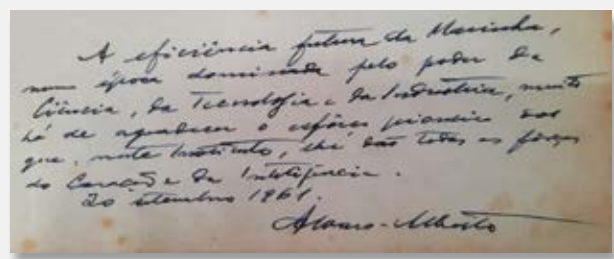 A eficiência futura da Marinha,
numa época dominada pelo poder da
Ciência, da Tecnologia e da Industria, muito
há de agradecer o esfôrço pioneiro dos
que, neste Instituto, dão todas as fôrças
do Coração e da Inteligência.
20 setembro 1961.
Alvaro-Alberto